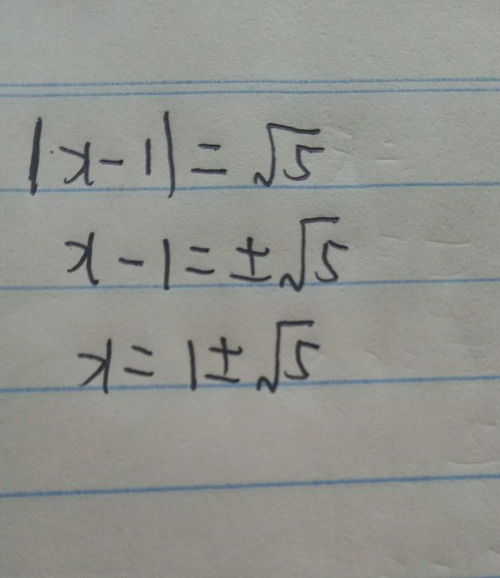 |x-1|=√5
x-1=±√5
x=1±√5